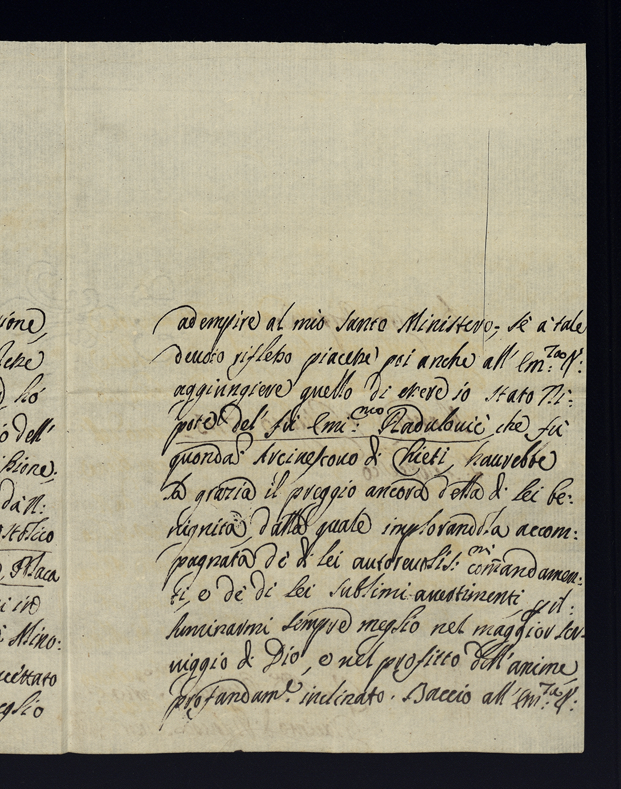 zione,
ho
dell'
sione,
da N:
Mino:
meglio
adempire al mio santo Ministero, se à tale
devoto riflesso piacehe poi anche all' Em:za V:
aggiungiere quello di essere io stato Ni-
pote del fù Emi:mo Radulovic che fù
quonda' Arcivescovo di Chieti, haurebbe
la grazia il preggio ancora della di lei be-
nignità, dalla quale implorandola accom-
pagnata de di lei autoreulis:mi comandamen-
ti, e de di lei sublimi avertimenti p il-
luminarmi sempre meglio nel maggior ser-
viggio di Dio, e nel profitto dell'anime,
profondam:e inclinato. Baccio all' Em:za V: